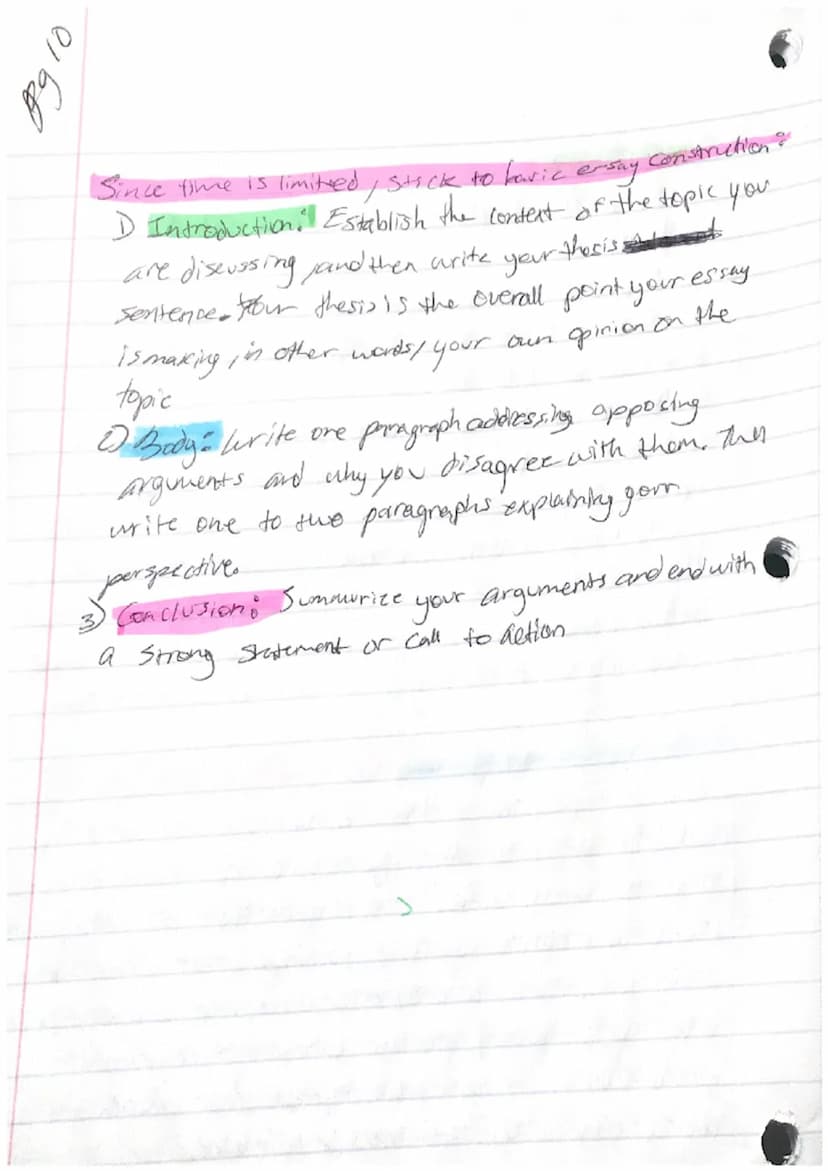 Pg 10
Since time is limited, stick to basic essay construction:
1) Introduction: Establish the context of the topic you
are discussing, and then write your thesis
sentence. Your thesis is the overall point your essay
is making, in other words, your own opinion on the
topic
2) Body: Write one paragraph addressing apposing
arguments and why you disagree with them. Then
write one to two paragraphs explaining your
perspective.
3) Conclusion: Summurize your arguments and end with
a strong statement or call to action